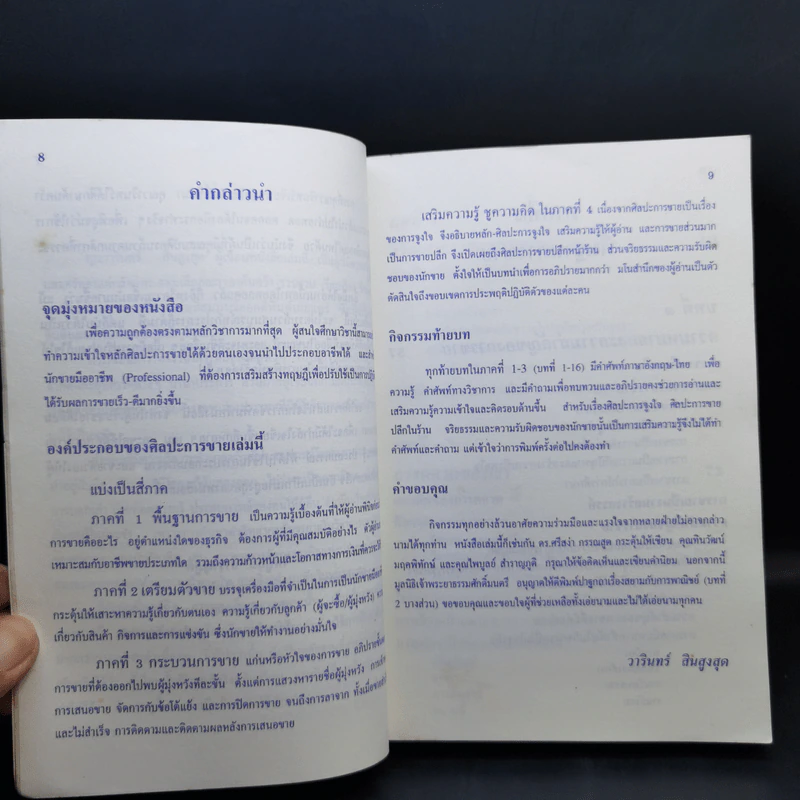 8
คำกล่าวนำ
จุดมุ่งหมายของหนังสือ
เพื่อความถูกต้องตรงตามหลักวิชาการมากที่สุด ผู้สนใจศึกษาวิชานี้สามารถ
ทำความเข้าใจหลักศิลปะการขายได้ด้วยตนเองจนนำไปประกอบอาชีพได้
นักขายมืออาชีพ (Professional) ที่ต้องการเสริมสร้างทฤษฎีเพื่อปรับใช้เป็นการ
ได้รับผลการขายเร็ว-ดีมากยิ่งขึ้น
องค์ประกอบของศิลปะการขายเล่มนี้
แบ่งเป็นสี่ภาค
ภาคที่ 1 พื้นฐานการขาย เป็นความรู้เบื้องต้นที่ให้ผู้อ่าน
การขายคืออะไร อยู่ตำแหน่งใดของธุรกิจ ต้องการผู้ที่มีคุณสมบัติอย่างไร
เหมาะสมกับอาชีพขายประเภทใด รวมถึงความก้าวหน้าและโอกาสทางการเงินที่
ภาคที่ 2 เตรียมตัวขาย บรรจุเครื่องมือที่จำเป็นในการเป็นนักขาย
กระตุ้นให้เสาะหาความรู้เกี่ยวกับตนเอง ความรู้เกี่ยวกับลูกค้า (ผู้จะซื้อ/ผู้มุ่งหวัง)
เกี่ยวกับสินค้า กิจการและการแข่งขัน ซึ่งนักขายใช้ทำงานอย่างมั่นใจ
ภาคที่ 3 กระบวนการขาย แก่นหรือหัวใจของการขาย อภิปราย
การขายที่ต้องออกไปพบผู้มุ่งหวังทีละขั้น ตั้งแต่การแสวงหารายชื่อผู้มุ่งหวัง
การเสนอขาย จัดการกับข้อโต้แย้ง และการปิดการขาย จนถึงการลาจาก
และไม่สำเร็จ การติดตามและติดตามผลหลังการเสนอขาย
9
เสริมความรู้ ชูความคิด ในภาคที่ 4 เนื่องจากศิลปะการขายเป็นเรื่อง
ของการจูงใจ จึงอธิบายหลัก-ศิลปะการจูงใจ เสริมความรู้ให้ผู้อ่าน และการขายส่วนมาก
เป็นการขายปลีก จึงเปิดเผยถึงศิลปะการขายปลีกหน้าร้าน ส่วนจริยธรรมและความรับผิด
ชอบของนักขาย ตั้งใจให้เป็นบทนำเพื่อการอภิปรายมากกว่า มโนสำนึกของผู้อ่านเป็นตัว
ตัดสินใจถึงขอบเขตการประพฤติปฏิบัติตัวของแต่ละคน
กิจกรรมท้ายบท
ทุกท้ายบทในภาคที่ 1-3 (บทที่ 1-16) มีคำศัพท์ภาษาอังกฤษ-ไทย เพื่อ
ความรู้ คำศัพท์ทางวิชาการ และมีคำถามเพื่อทบทวนและอภิปรายคงช่วยการอ่านและ
เสริมความรู้ความเข้าใจและคิดรอบด้านขึ้น สำหรับเรื่องศิลปะการจูงใจ ศิลปะการขาย
ปลีกในร้าน จริยธรรมและความรับผิดชอบของนักขายนั้นเป็นการเสริมความรู้จึงไม่ได้ทำ
คำศัพท์และคำถาม แต่เข้าใจว่าการพิมพ์ครั้งต่อไปคงต้องทำ
คำขอบคุณ
กิจกรรมทุกอย่างล้วนอาศัยความร่วมมือและแรงใจจากหลายฝ่ายไม่อาจกล่าว
นามได้ทุกท่าน หนังสือเล่มนี้ก็เช่นกัน ดร.ศรีสง่า กรรณสูต กระตุ้นให้เขียน คุณทินวัฒน์
มฤคพิทักษ์ และคุณไพบูลย์ สำราญภูติ กรุณาให้ข้อคิดเห็นและเขียนคำนิยม นอกจากนี้
มูลนิธิเจ้าพระยาธรรมศักดิ์มนตรี อนุญาตให้ตีพิมพ์ปาฐกถาเรื่องสยามกับการพาณิชย์ (บทที่
2 บางส่วน) ขอขอบคุณและขอบใจผู้ที่ช่วยเหลือทั้งเอ่ยนามและไม่ได้เอ่ยนามทุกคน
วารินทร์ สินสูงสุด